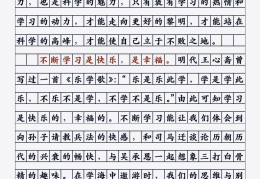 力，也是科学的魅力，只有拥有学习的热情和
学习的动力，才能走向更好的黎明，才能站在
科学的高峰，才能使自己立于不败之地。
不断学习是快乐，是幸福。明代王心斋曾
写过一首《乐学歌》：“乐是乐此学，学是学此
乐，不乐不是学，不学不是乐。”由此可知学习
是快乐的，幸福的。不断学习能让我们体会到
向孙子请教兵法的快感，和司马迁谈论历朝历
代的兴衰的畅快，与吴承恩一起想象三打白骨
精的趣味。在学海中遨游时，我们的思维与别